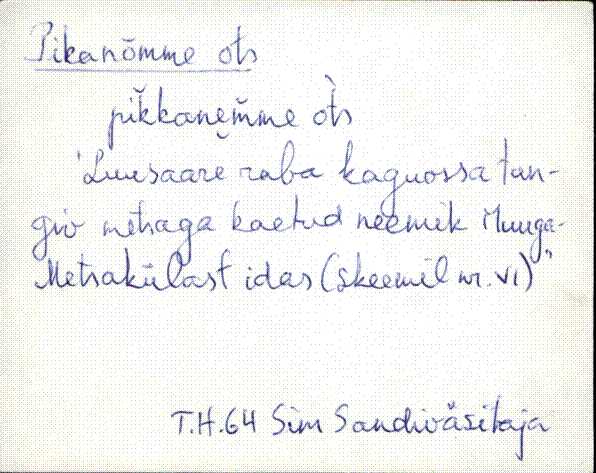 Pikanõmme ots
pĭkkanem̆me òts
'Luusaare raba kaguossa tun-
giv metsaga kaetud neemik Muuga-
Metsakülast idas (skeemil nr. VI)"
T.H.64 Sim Sandiväsitaja